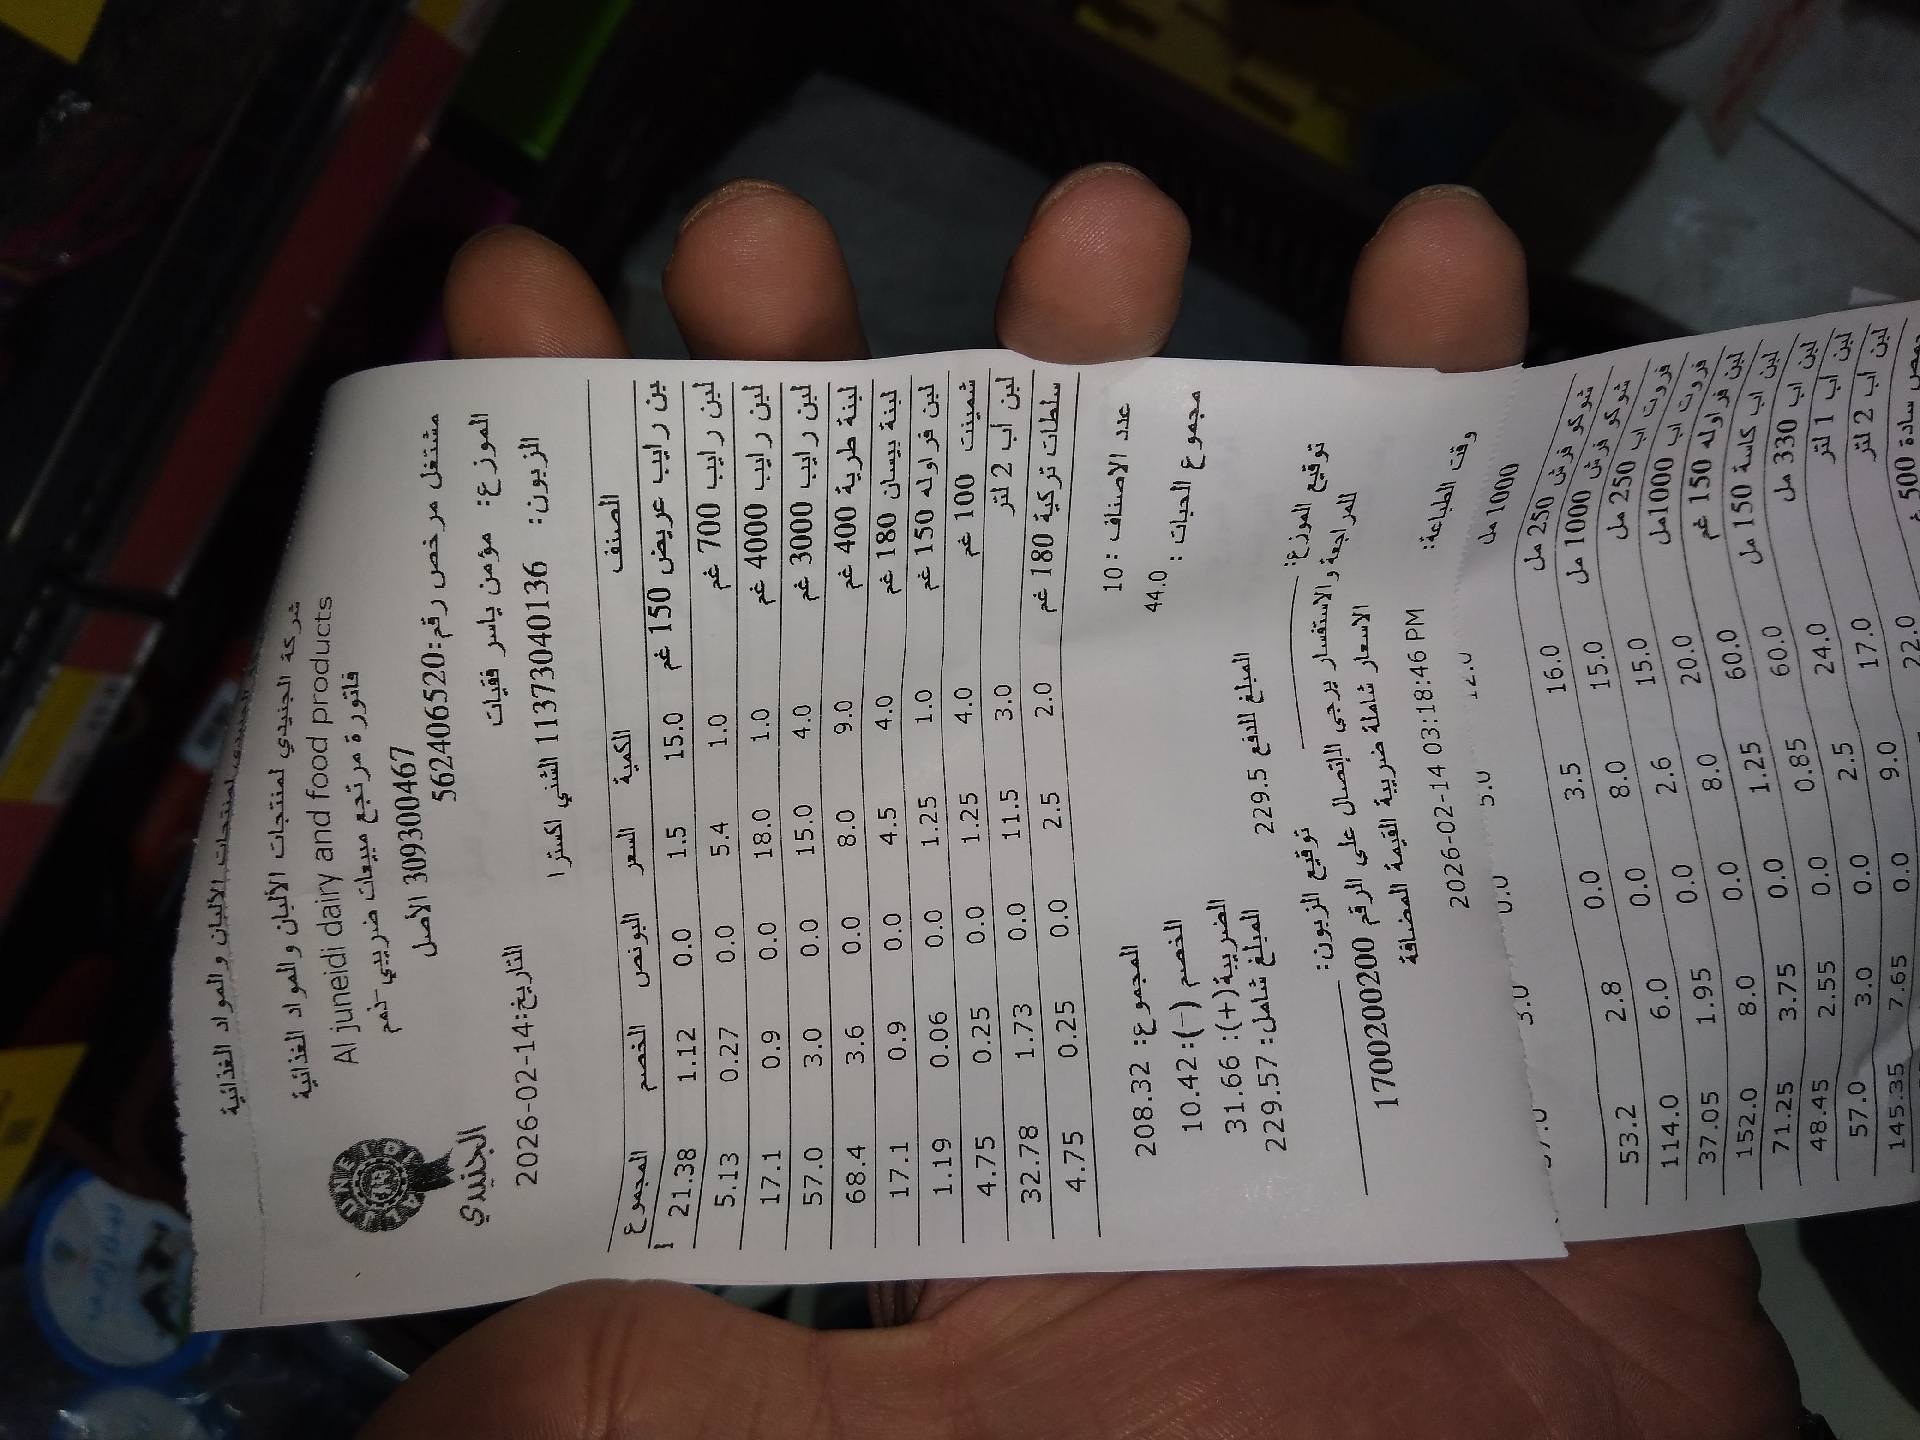 شركة الجنيدي لمنتجات الألبان والمواد الغذائية
Al juneidi dairy and food products
فاتورة مرتجع مبيعات ضريبي-نمم
309300467 الأصل
مشتغل مرخص رقم:562406520
الجنيدي
الموزع: مؤمن ياسر فقيات
التاريخ:2026-02-14
الزبون: 11373040136 الشني اكسترا
الصنف الكمية السعر البونص الخصم المجموع
بن رايب عريض 150 غم 15.0 1.5 0.0 1.12 21.38
لبن رايب 700 غم 1.0 5.4 0.0 0.27 5.13
لبن رايب 4000 غم 1.0 18.0 0.0 0.9 17.1
لبن رايب 3000 غم 4.0 15.0 0.0 3.0 57.0
لبنة طرية 400 غم 9.0 8.0 0.0 3.6 68.4
لبنة بيسان 180 غم 4.0 4.5 0.0 0.9 17.1
لبن فراوله 150 غم 1.0 1.25 0.0 0.06 1.19
شمينت 100 غم 4.0 1.25 0.0 0.25 4.75
لبن اب 2 لتر 3.0 11.5 0.0 1.73 32.78
سلطات تركية 180 غم 2.0 2.5 0.0 0.25 4.75
عدد الاصناف : 10 المجموع: 208.32
مجموع الحبات : 44.0 الخصم (-): 10.42
الضريبة(+): 31.66
المبلغ للدفع 229.5 المبلغ شامل: 229.57
توقيع الموزع: توقيع الزبون:
للمراجعة والاستفسار يرجى الإتصال على الرقم 1700200200
الاسعار شاملة ضريبة القيمة المضافة
وقت الطباعة: 2026-02-14 03:18:46 PM
1000 مل
شوكو فرش 250 مل 16.0 3.5 0.0 2.8 53.2
شوكو فرش 1000 مل 15.0 8.0 0.0 6.0 114.0
فروت اب 250 مل 15.0 2.6 0.0 1.95 37.05
فروت اب 1000مل 20.0 8.0 0.0 8.0 152.0
لبن فراوله 150 غم 60.0 1.25 0.0 3.75 71.25
لبن اب كاسة 150 مل 60.0 0.85 0.0 2.55 48.45
لبن اب 330 مل 24.0 2.5 0.0 3.0 57.0
لبن اب 1 لتر 17.0 9.0 0.0 7.65 145.35
لبن اب 2 لتر 22.0
سادة 500